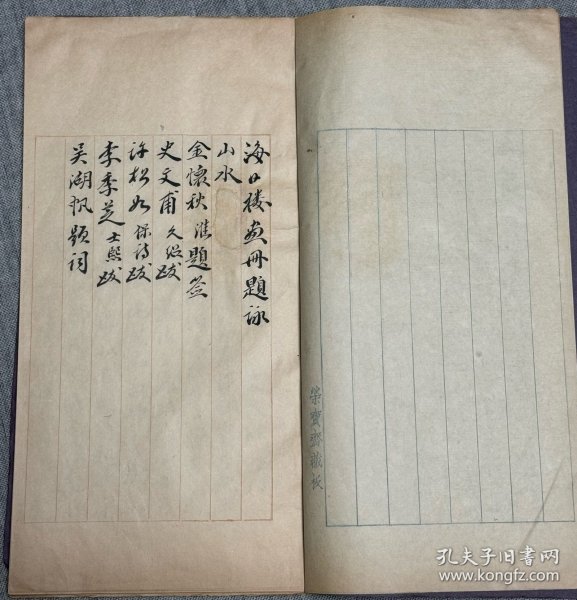 海日楼画册題詠
山水
金懷秋 淮題签
史文甫 久㳂跋
許松如 保詩跋
李季芝 士熙跋
吴湖帆题词
榮寶齋藏板
孔夫子旧书网
www.kongfz.com